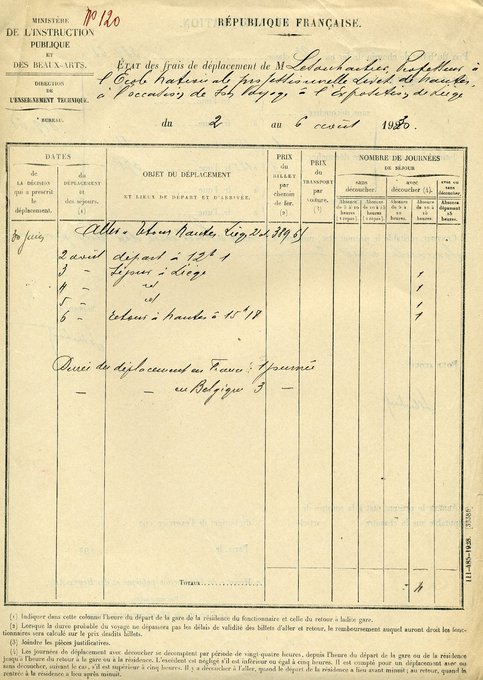 MINISTÈRE
DE L'INSTRUCTION
PUBLIQUE
ET
DES BEAUX-ARTS.
DIRECTION
DE
L'ENSEIGNEMENT TECHNIQUE.
BUREAU.
N° 120
RÉPUBLIQUE FRANÇAISE.
ÉTAT des frais de déplacement de M Professeur à
l'École Nationale professionnelle Livet de Nantes,
à l'occasion de son Voyage à l'Exposition de Liège
du 2 au 6 août 1930.
DATES
de
LA DÉCISION
qui a prescrit
le
déplacement.
du
DÉPLACEMENT
et
des séjours.
(1)
OBJET DU DÉPLACEMENT
ET LIEUX DE DÉPART ET D'ARRIVÉE.
PRIX
DU
BILLET
par
chemin
de fer.
(2)
PRIX
DU
TRANSPORT
par
voiture.
(3)
NOMBRE DE JOURNÉES
DE SÉJOUR
sans
découcher.
avec
découcher (4).
avec ou
sans
découcher
Absence
de 5 à 10
heures
1 repas.
Absence
de 10 à 15
heures
2 repas.
Absence
de 5
à 10
heures
Absence
de 10
à 15
heures
Absence
dépassant
15
heures
30 Juin Aller et retour Nantes Liège 389,65
2 août départ à 12h 1
3 - Séjour à Liège 1
4 - id 1
5 - id 1
6 - retour à Nantes à 15h18 1
Durée du déplacement en France : 1 journée
- - en Belgique 3 -
TOTAUX 4
111-485-1928. [33381]
(1) Indiquer dans cette colonne l'heure du départ de la gare de la résidence du fonctionnaire et celle du retour à ladite gare.
(2) Lorsque la durée probable du voyage ne dépassera pas les délais de validité des billets d'aller et retour, le remboursement auquel auront droit les fonc-
tionnaires sera calculé sur le prix desdits billets.
(3) Joindre les pièces justificatives.
(4) Les journées de déplacement avec découcher se décomptent par période de vingt-quatre heures, depuis l'heure du départ de la gare ou de la résidence
jusqu'à l'heure du retour à la gare ou à la résidence. L'excédent est négligé s'il est inférieur ou égal à cinq heures. Il est compté pour un déplacement avec ou
sans découcher, suivant le cas, s'il est supérieur à cinq heures. Il y a découcher à l'aller, quand le départ de la résidence a lieu avant minuit; au retour, quand la
rentrée à la résidence a lieu après minuit.